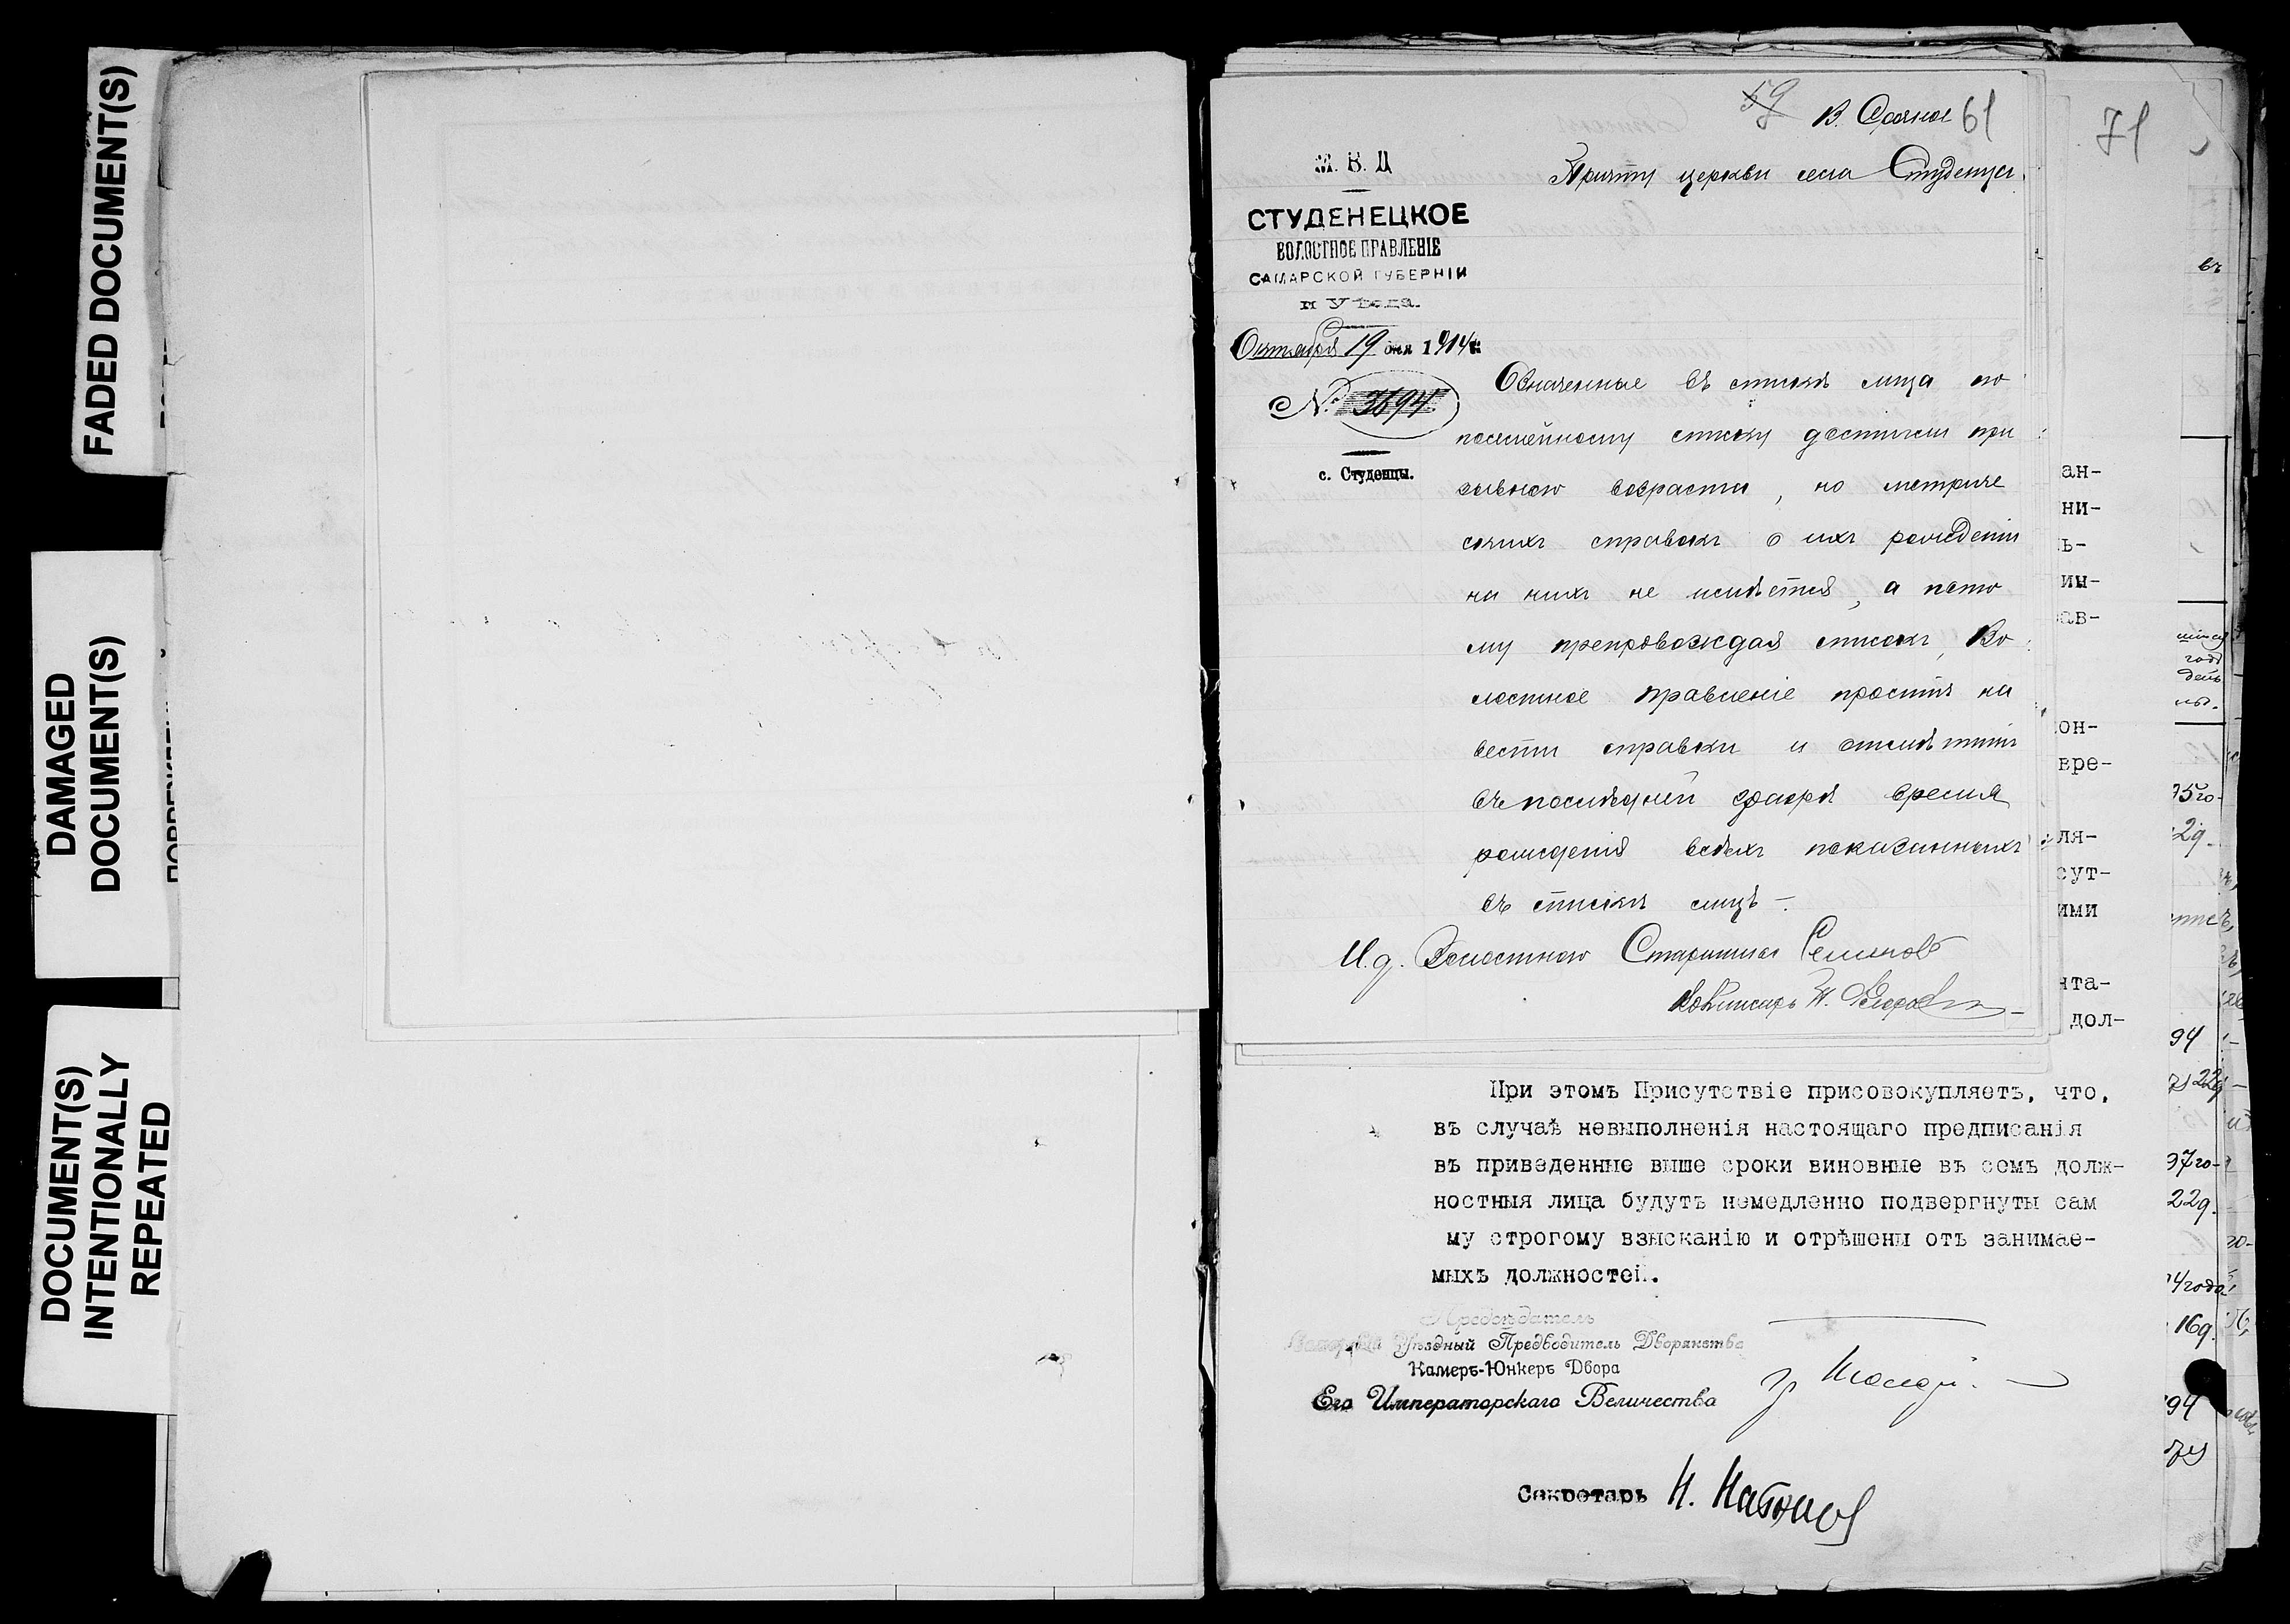 FADED DOCUMENT(S)
DAMAGED
DOCUMENT(S)
DOCUMENT(S)
INTENTIONALLY
REPEATED
59 В. Срочное 61
71
М. В. Д
Причту церкви села Студенца.
СТУДЕНЕЦКОЕ
ВОЛОСТНОЕ ПРАВЛЕНІЕ
САМАРСКОЙ ГУБЕРНІИ
и Уѣзда.
Октября 19 дня 1914 г.
№ 3694
с. Студенцы.
Означенные въ спискѣ лица по
посемейному списку достигли при
зывного возраста, но метриче
скихъ справокъ о ихъ рожденіи
на нихъ не имѣется, а пото
му препровождая списокъ, Во
лостное Правленіе проситъ на
вести справки и отмѣтить
въ послѣдней графѣ время
рожденія всѣхъ показанныхъ
въ спискѣ лицъ —.
И. д. Волостного Старшины Семенов
ан-
ни-
ь-
ин-
ав-
он-
вре-
ля-
сут-
ими
нта-
дол-
При этомъ Присутствіе присовокупляетъ, что,
въ случаѣ невыполненія настоящаго предписанія
въ приведенные выше сроки виновные въ семъ долж-
ностныя лица будутъ немедленно подвергнуты сам
му строгому взысканію и отрѣшены отъ занимае-
мыхъ должностей.
Предсѣдатель
Уѣздный Предводитель Дворянства
Камеръ-Юнкеръ Двора
Его Императорскаго Величества
Секретарь Н.
въ
годъ
день
95 го-
22д.
94
97 го-
22д.
94 года
16д.
94